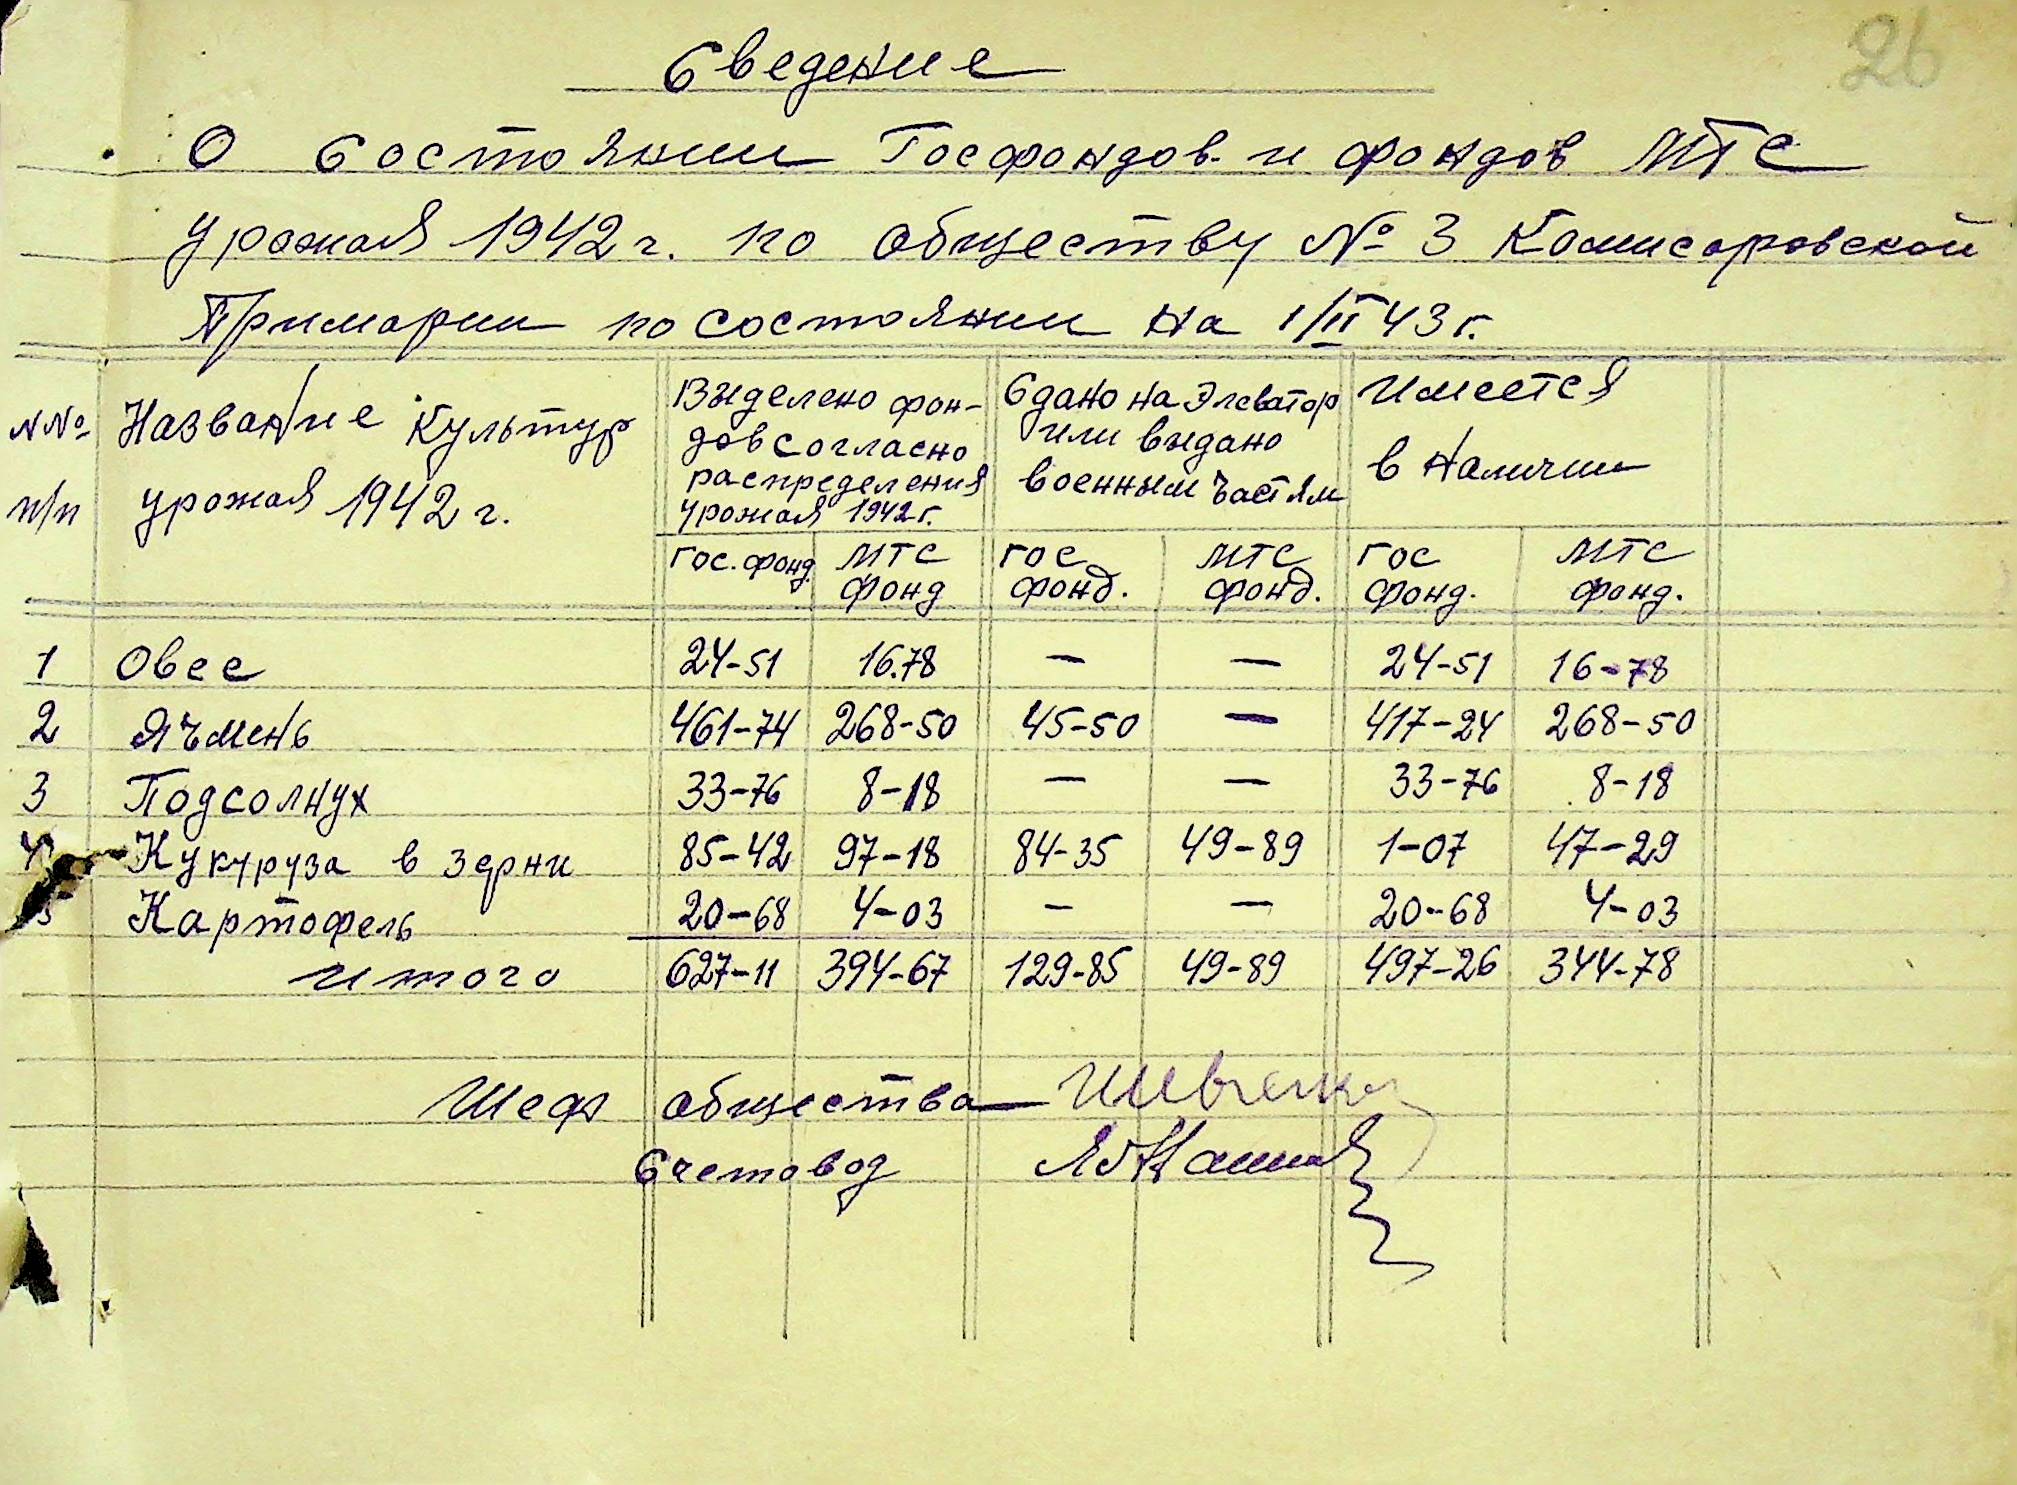 26
Сведение
О Состоянии Госфондов и фондов МТС
урожая 1942 г. по обществу № 3 Комисаровской
Примарии по состоянии на 1/II 43 г.
№№ п/п
Название культур урожая 1942 г.
Выделено фон-
дов согласно
распределения
урожая 1942 г.
Сдано на Элеватор
или выдано
военным частям
Имеется
в наличии
Гос. фонд. МТС фонд Гос фонд. МТС фонд. Гос фонд. МТС фонд.
1 Овес 24-51 16.78 — — 24-51 16-78
2 Ячмень 461-74 268-50 45-50 — 417-24 268-50
3 Подсолнух 33-76 8-18 — — 33-76 8-18
4 Кукуруза в зерни 85-42 97-18 84-35 49-89 1-07 47-29
5 Картофель 20-68 4-03 — — 20-68 4-03
Итого 627-11 394-67 129-85 49-89 497-26 344-78
Шеф общества
Счетовод